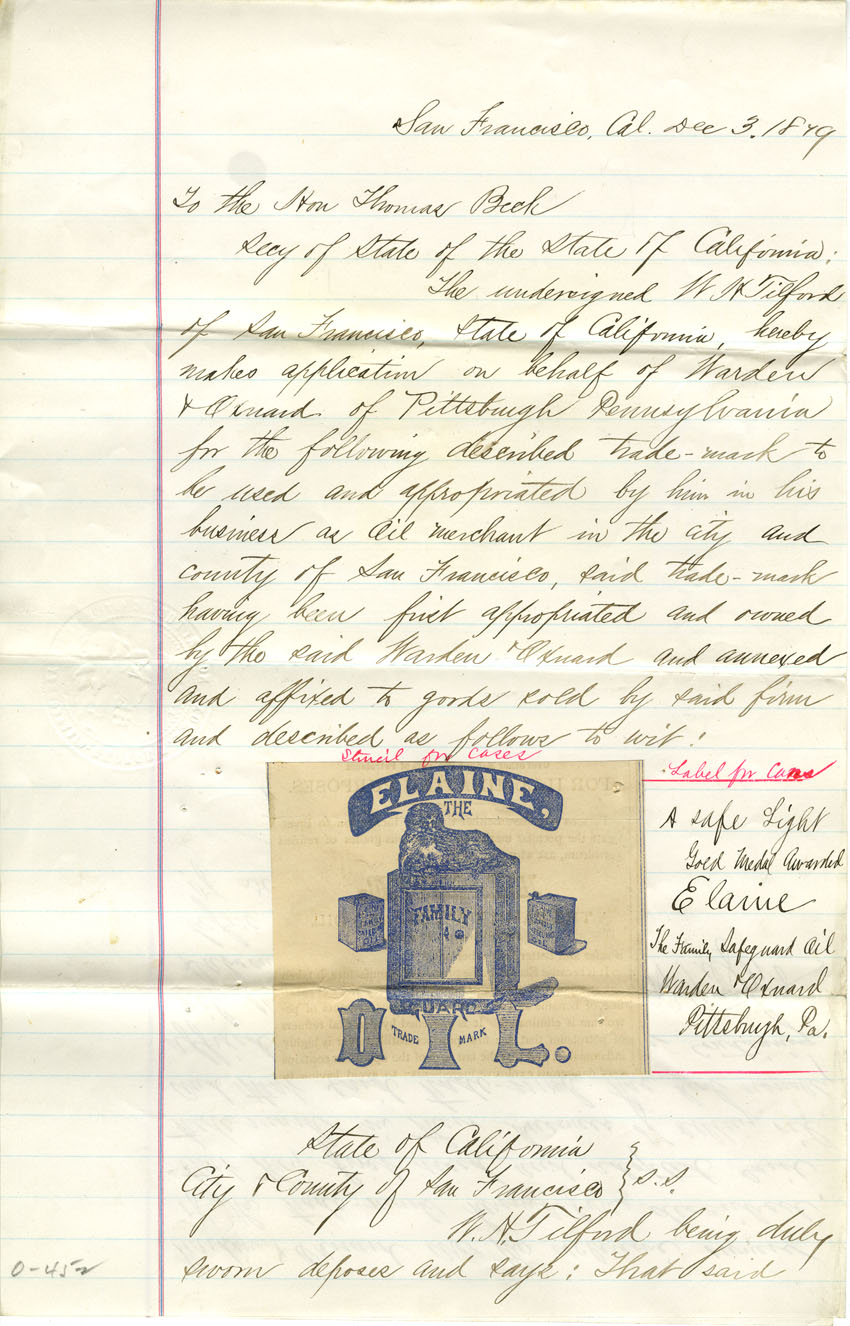 San Francisco, Cal. Dec 3. 1879
To the Hon Thomas Beck
Secy of State of the State of California:
The undersigned W H Tilford
of San Francisco, State of California, hereby
makes application on behalf of Warden
& Oxnard of Pittsburgh Pennsylvania
for the following described trade-mark to
be used and appropriated by him in his
business as Oil merchant in the city and
county of San Francisco, said trade-mark
having been first appropriated and owned
by the said Warden & Oxnard and annexed
and affixed to goods sold by said firm
and described as follows to wit:
Stencil for Cases
ELAINE,
THE
FAMILY
GUARD
OIL.
TRADE MARK
Label for Cans
A Safe Light
Gold Medal Awarded
Elaine
The Family Safeguard Oil
Warden & Oxnard
Pittsburgh, Pa.
State of California
City & County of San Francisco } S.S.
W. H. Tilford being duly
sworn deposes and says: That said
0-452